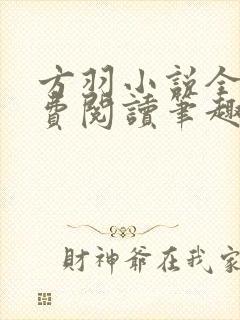 方羽小说全
費閱讀筆趣
財神爺在我家